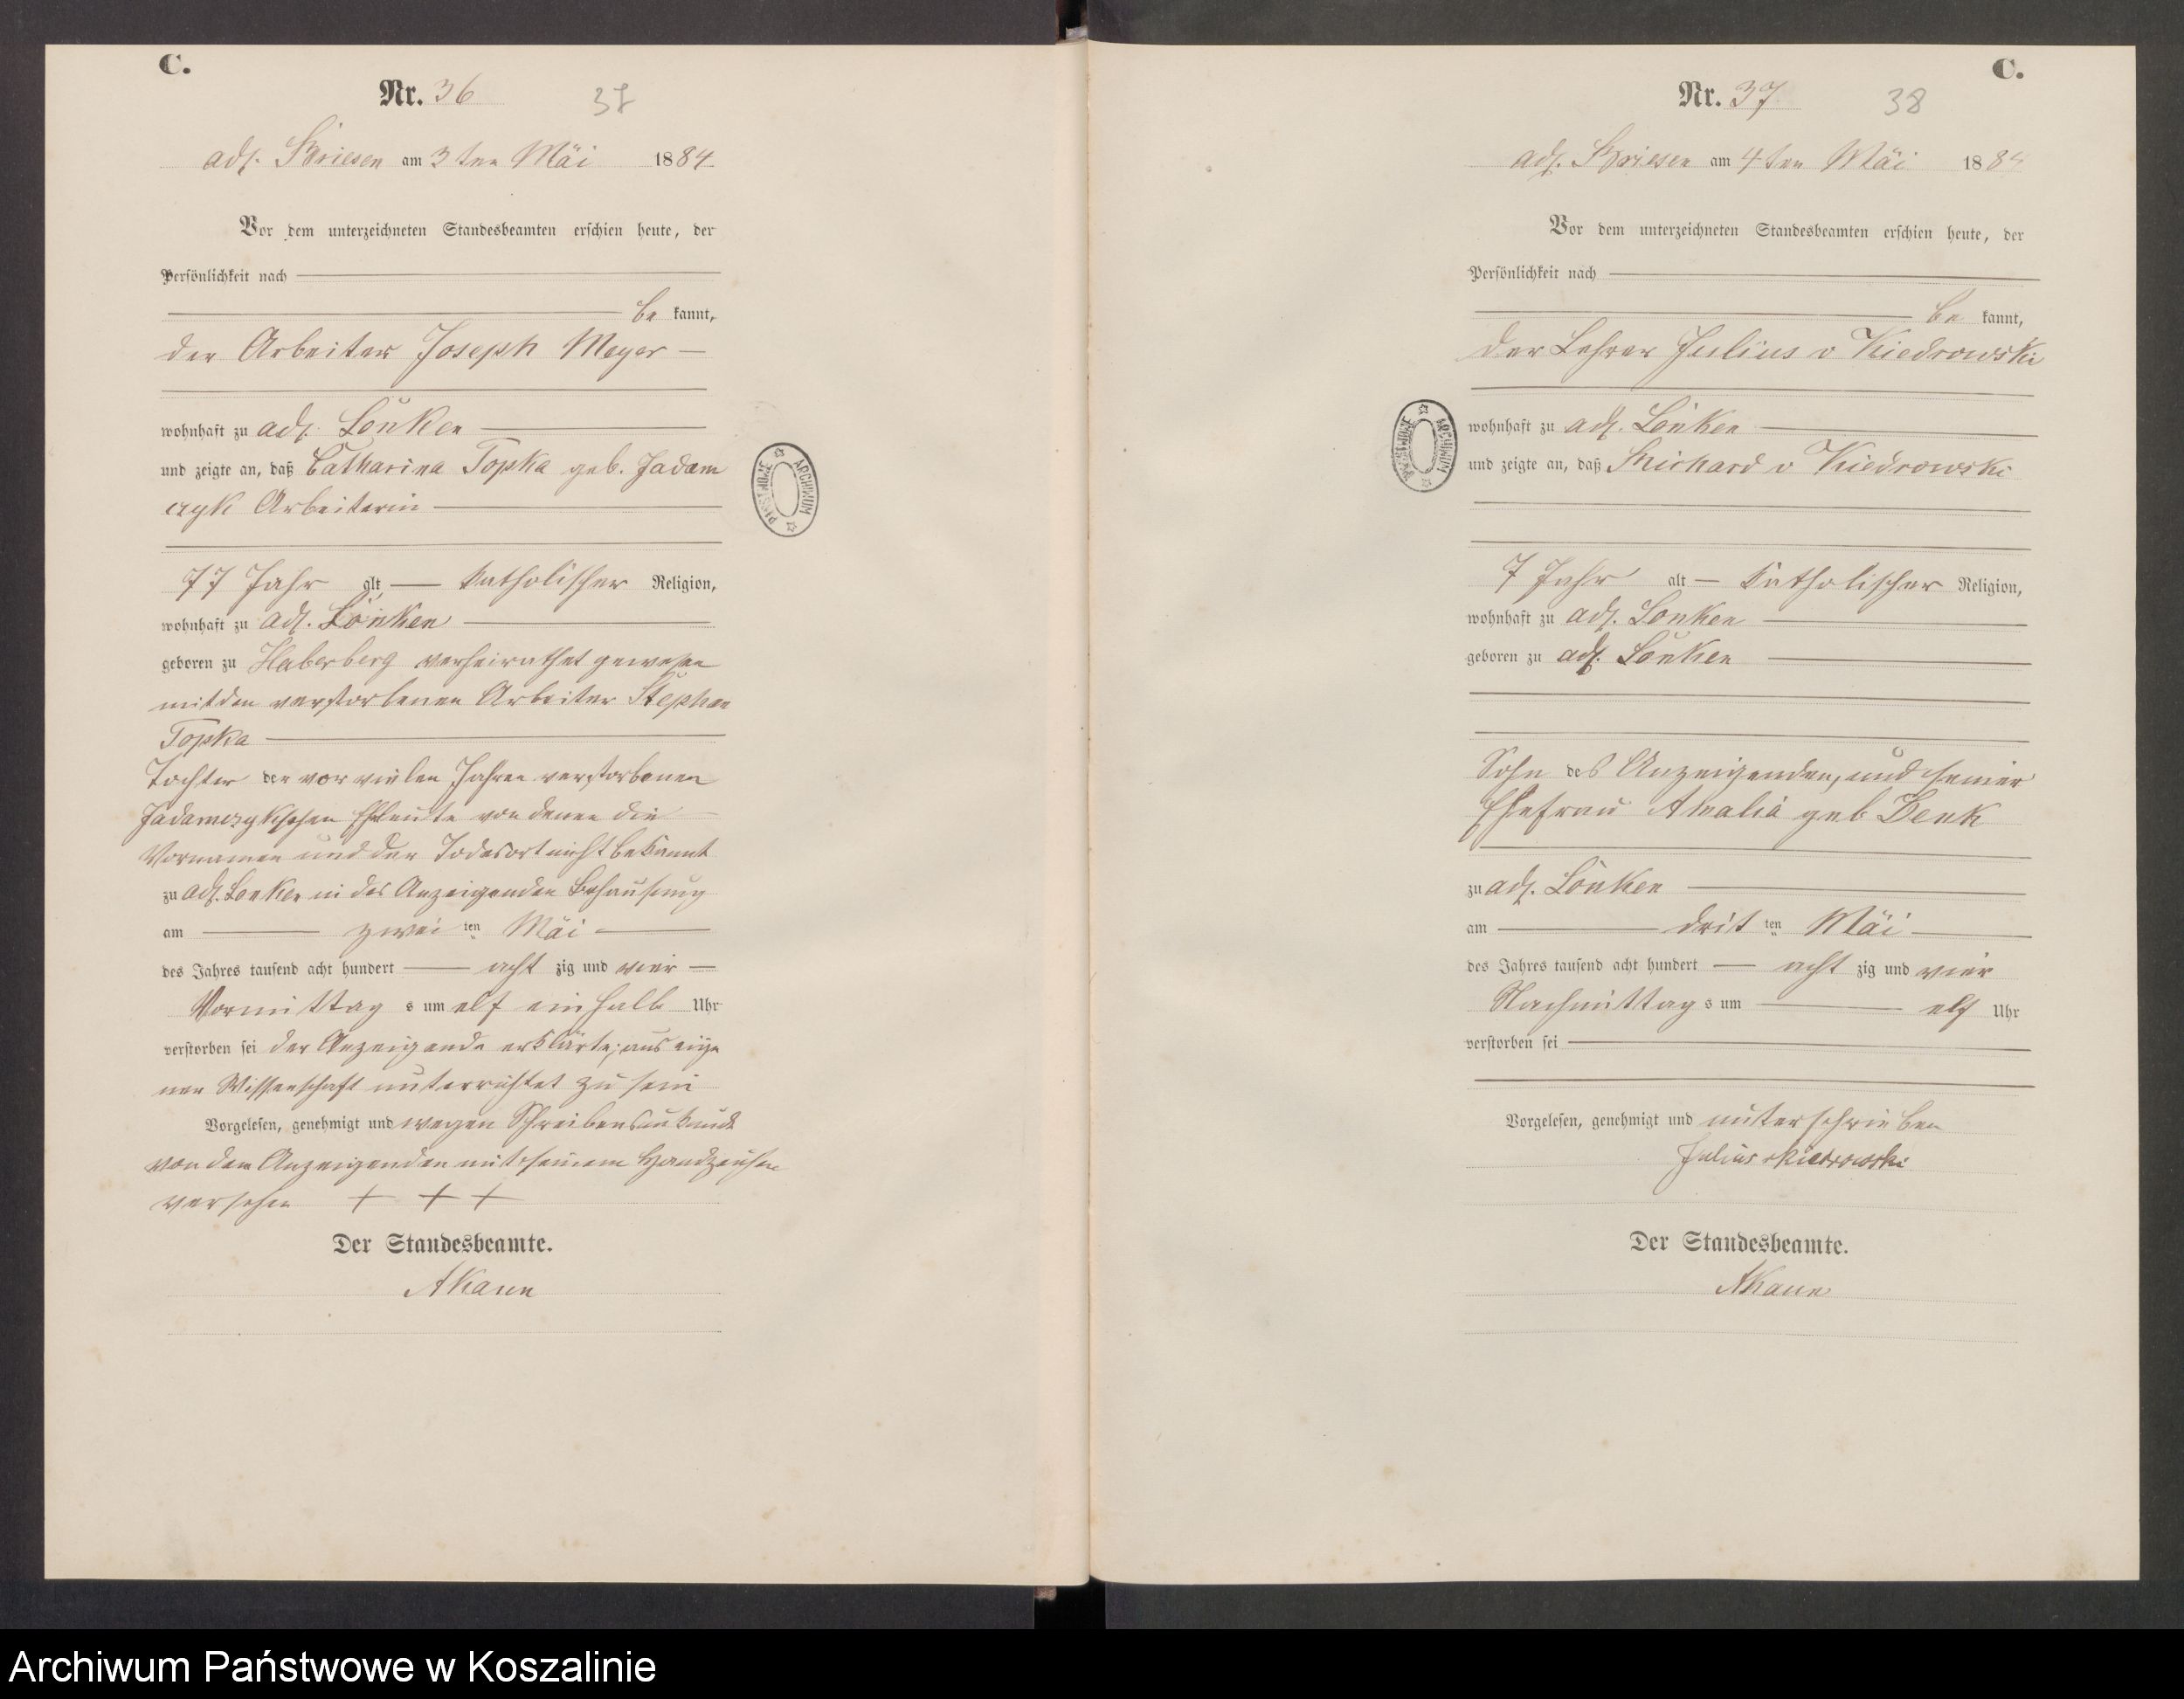 C.
Nr. 36
37
adl. Briesen am 3ten Mai 1884
Vor dem unterzeichneten Standesbeamten erschien heute, der
Persönlichkeit nach
be kannt,
der Arbeiter Joseph Meyer
wohnhaft zu adl. Lonken
und zeigte an, daß Catharina Topka geb. Jadam
czyk Arbeiterin
77 Jahr alt, katholischer Religion,
wohnhaft zu adl. Lonken
geboren zu Haberberg verheirathet gewesen
mit den verstorbenen Arbeiter Stephan
Topka
Tochter der vor vielen Jahren verstorbenen
Jadamczykschen Eheleute von denen die
Vornamen und der Todesort nicht bekannt
zu adl. Lonken in des Anzeigenden Behausung
am zwei ten Mai
des Jahres tausend acht hundert acht zig und vier
Vormittag s um elf ein halb Uhr
verstorben sei der Anzeigende erklärte, aus eige
nen Wissenschaft unterrichtet zu sein
Vorgelesen, genehmigt und wegen Schreibensunkunde
von dem Anzeigenden mit seinem Handzeichen
versehen + + +
Der Standesbeamte.
AKaun
ARCHIWUM PAŃSTWOWE
C.
Nr. 37
38
adl. Briesen am 4ten Mai 1884
Vor dem unterzeichneten Standesbeamten erschien heute, der
Persönlichkeit nach
be kannt,
der Lehrer Julius v Kiedrowski
wohnhaft zu adl. Lonken
und zeigte an, daß Richard v Kiedrowski
7 Jahr alt katholischer Religion,
wohnhaft zu adl. Lonken
geboren zu adl. Lonken
Sohn des Anzeigenden, und seiner
Ehefrau Amalia geb Denk
zu adl. Lonken
am drit ten Mai
des Jahres tausend acht hundert acht zig und vier
Nachmittag s um elf Uhr
verstorben sei
Vorgelesen, genehmigt und unterschrieben
Julius v Kiedrowski
Der Standesbeamte.
AKaun
ARCHIWUM PAŃSTWOWE
Archiwum Państwowe w Koszalinie